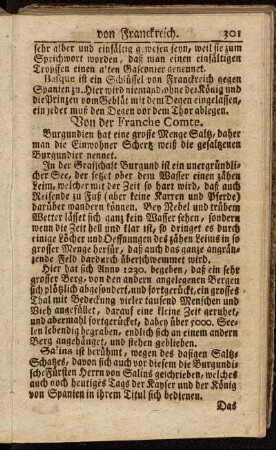 von Franckreich. 301
sehr alber und einfältig gewesen seyn, weil sie zum
Sprichwort worden, daß man einen einfältigen
Tropffen einen alten Gasconier genennet.
Basque ist ein Schlüssel von Franckreich gegen
Spanien zu. Hier wird niemand, ohne des König und
die Prinzen vom Geblüt mit dem Degen eingelassen,
ein jeder muß den Degen vor dem Thor ablegen.
Von der Franche Comte.
Burgundien hat eine grosse Menge Saltz, daher
man die Einwohner Schertz weiß die gesaltzenen
Burgundier nennet.
In der Grafschafft Burgund ist ein unergründli-
cher See, der setzet ober dem Wasser einen zähen
Leim, welcher mit der Zeit so hart wird, daß auch
Reisende zu Fuß (aber keine Karren und Pferde)
darüber wandern können. Bey Nebel und trübem
Wetter lässet sich gantz kein Wasser sehen, sondern
wenn die Zeit hell und klar ist, so dringet es durch
einige Löcher und Oeffnungen des zähen Leims in so
grosser Menge herfür, daß auch das gantze angrän-
zende Feld dardurch überschwemmet wird.
Hier hat sich Anno 1230. begeben, daß ein sehr
grosser Berg, von den andern angelegenen Bergen
sich plötzlich abgesondert, und fortgerückt, ein grosses
Thal mit Bedeckung vieler tausend Menschen und
Vieh angefüllet, darauf eine kleine Zeit geruhet,
und abermahl fortgerücket, dabey über 5000. See-
len lebendig begraben, endlich sich an einem andern
Berg angehänget, und stehen geblieben.
Salins ist berühmt, wegen des dasigen Saltz-
Schatzes, davon sich auch vor diesem die Burgundi-
sche Fürsten Herrn von Salins geschrieben, welches
auch noch heutiges Tags der Kayser und der König
von Spanien in ihrem Titul sich bedienen.
Das